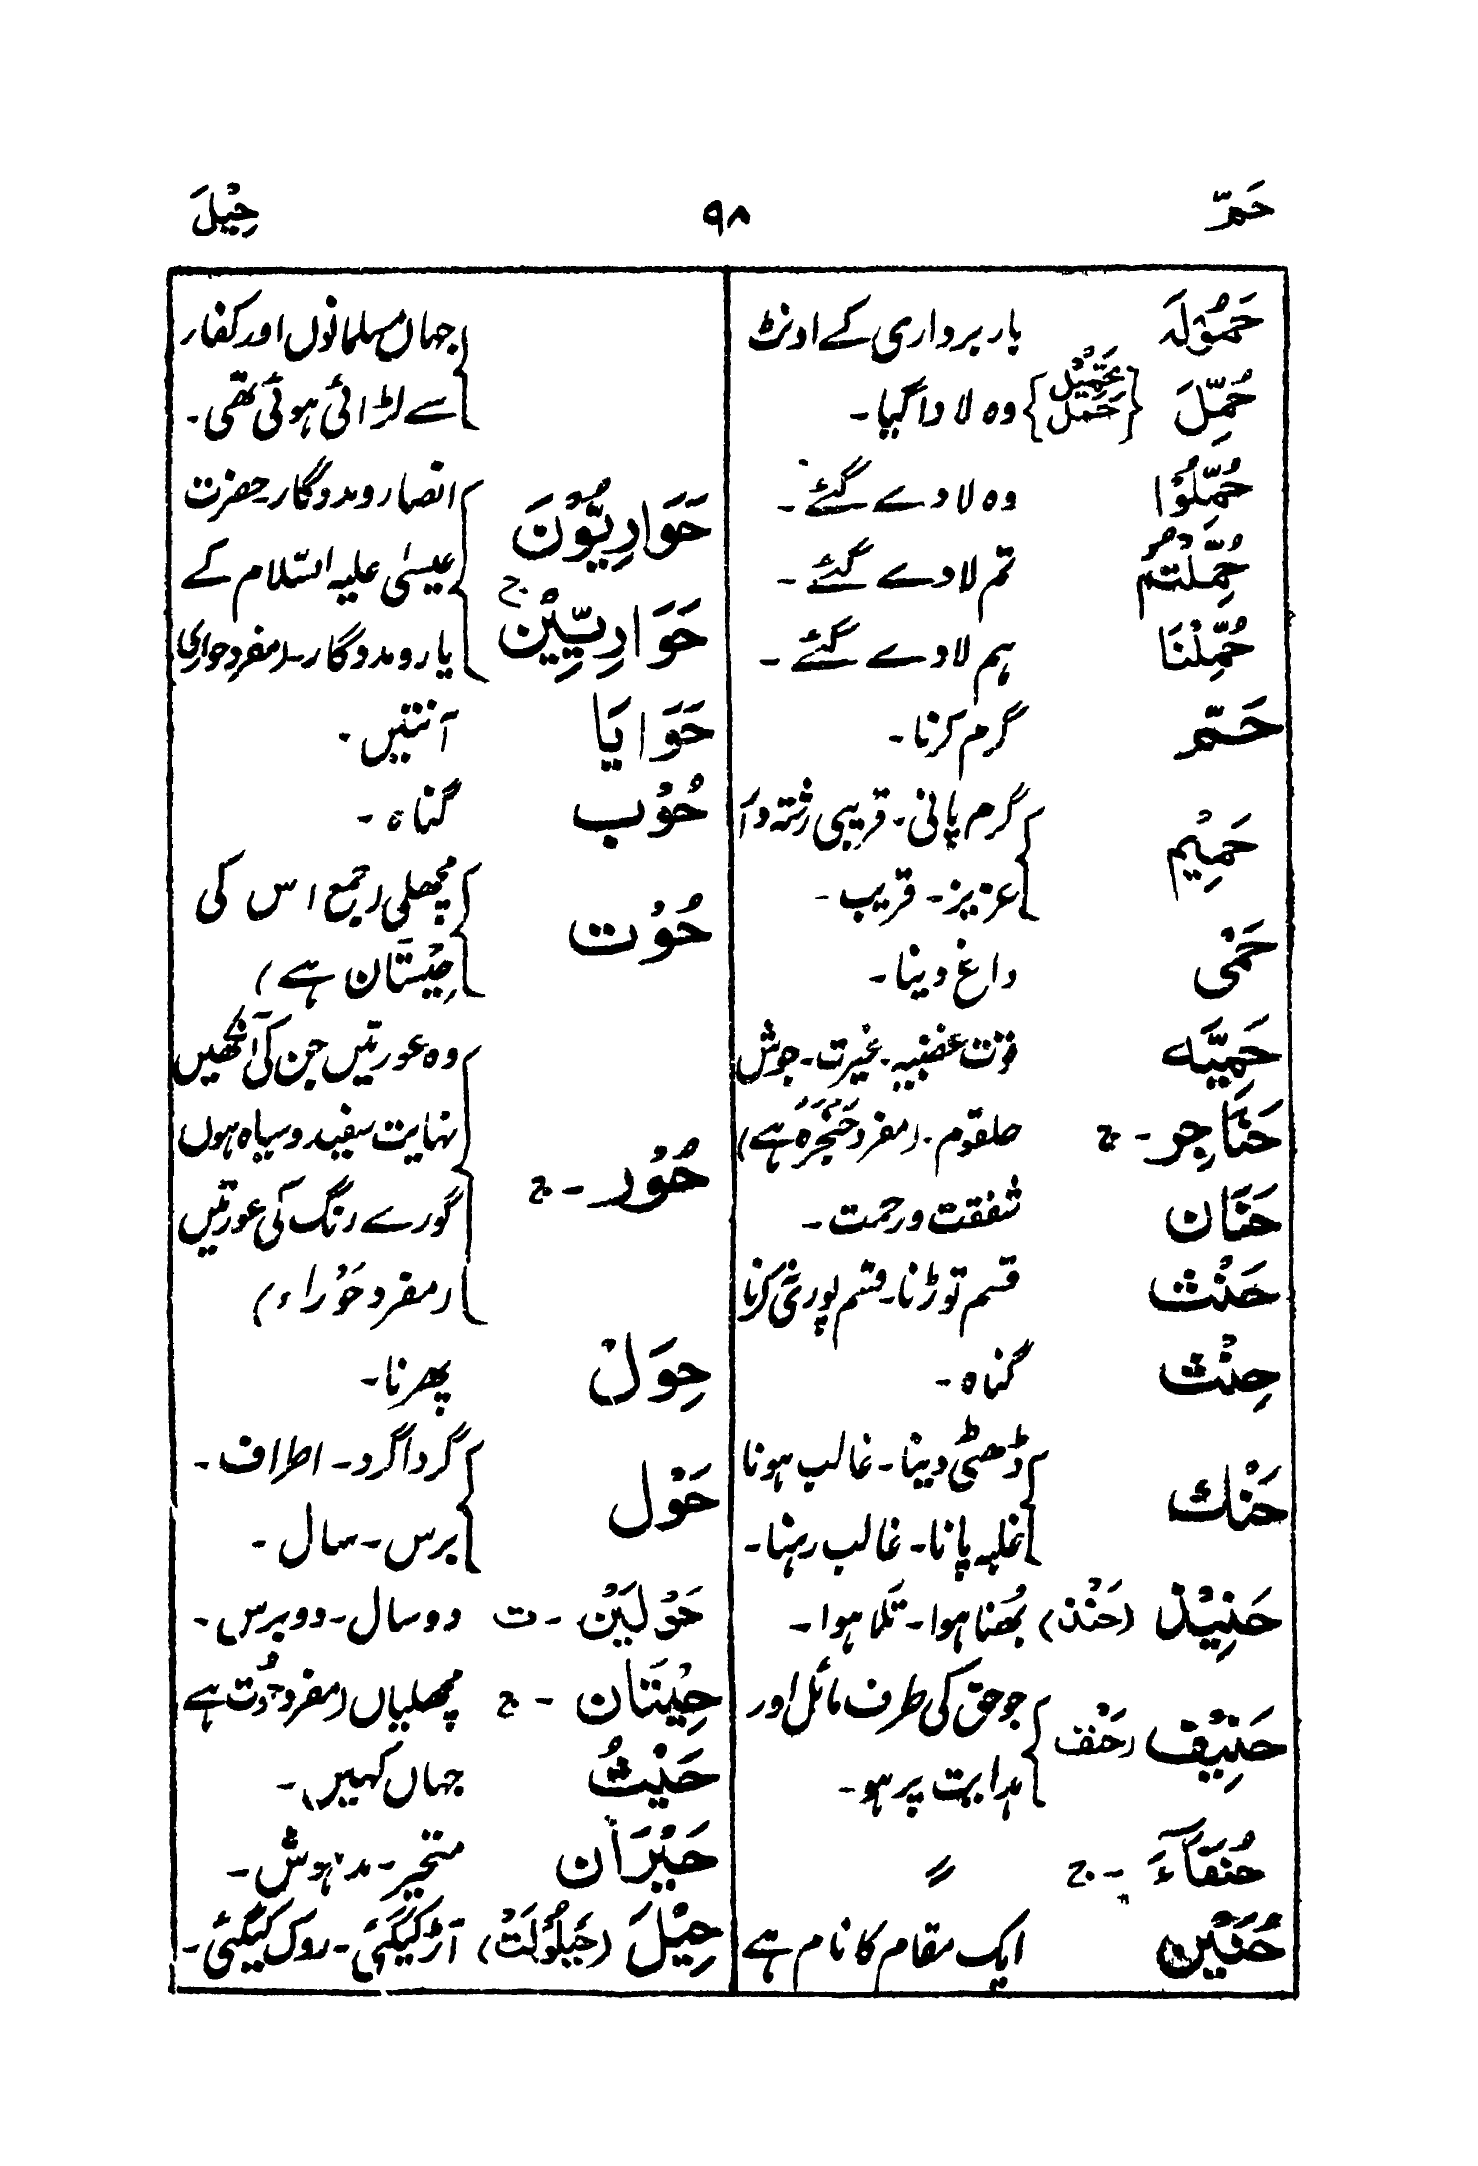 حَمّ ۹۸ حِيْلَ
حَمُوْلَہ بار برداری کے اونٹ
حُمِّلَ {تَحْمِيْل حَمْل} وہ لادا گیا۔
حُمِّلُوْا وہ لادے گئے۔
حُمِّلْتُمْ تم لادے گئے۔
حُمِّلْنَا ہم لادے گئے۔
حَمّ گرم کرنا۔
حَمِيْم گرم پانی۔ قریبی رشتہ دار
عزیز۔ قریب۔
حَمْی داغ دینا۔
حَمِيَّه قوت غضبیہ۔ غیرت۔ جوش
حَنَاجِر۔ ج حلقوم۔ (مفرد حَنْجَرَہ ہے)
حَنَان شفقت و رحمت۔
حَنْث قسم توڑنا۔ قسم پوری نہ کرنا
حِنْث گناہ۔
حَنْك ڈھٹی دینا۔ غالب ہونا
غلبہ پانا۔ غالب رہنا۔
حَنِيْذ (حَنْذ) بُھنا ہوا۔ تَلا ہوا۔
حَنِيْف (حَنْف جو حق کی طرف مائل اور
ہدایت پر ہو۔
حُنَفَآءَ ۔ ج 〃
حُنَيْن ایک مقام کا نام ہے
جہاں مسلمانوں اور کفار
سے لڑائی ہوئی تھی۔
حَوَارِيُّوْنَ انصار و مددگار۔ حضرت
عیسٰی علیہ السّلام کے
حَوَارِيِّيْنَ ج یار و مددگار۔ (مفرد حواری
حَوَايَا آنتیں۔
حُوْب گناہ۔
حُوْت مچھلی (جمع اس کی
حِيْتَان ہے)
وہ عورتیں جن کی آنکھیں
نہایت سفید و سیاہ ہوں
حُوْر۔ ج گورے رنگ کی عورتیں
(مفرد حَوْراء)
حِوَلْ پھرنا۔
حَوْل گرداگرد۔ اطراف۔
برس۔ سال۔
حَوْلَيْنِ ۔ ت دو سال۔ دو برس۔
حِيْتَان ۔ ج مچھلیاں (مفرد حُوْت ہے
حَيْثُ جہاں کہیں۔
حَيْرَان متحیر۔ مدہوش۔
حِيْلَ (حَيْلُوْلَتْ) آڑ کیگئی۔ روک کیگئی۔